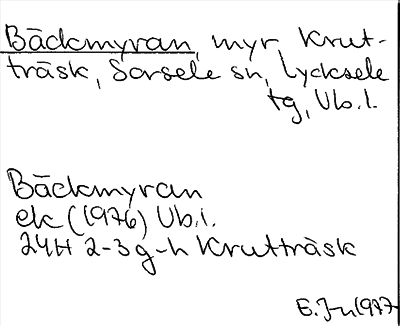 Bäckmyran, myr Krut-
träsk, Sorsele sn, Lycksele
tg, Vb.l.
Bäckmyran
ek (1976) Vb.l.
24H 2-3 g-h Krutträsk
1977